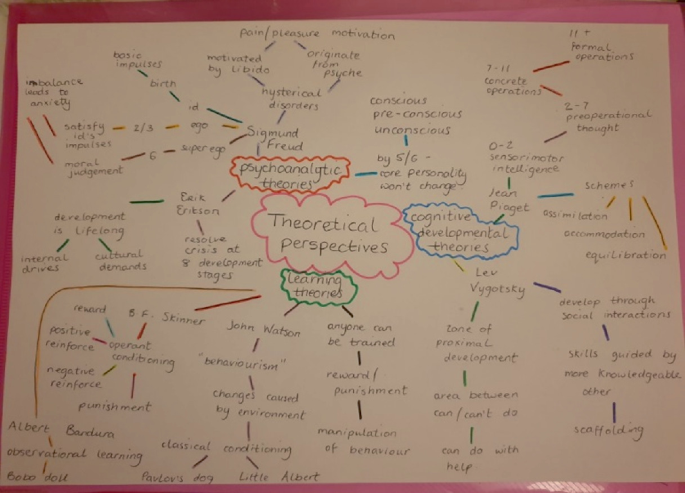 pain/pleasure motivation
motivated
by Libido
originate
from
psyche
hysterical
disorders
basic
impulses
birth
id
imbalance
leads to
anxiety
satisfy
id's
impulses
2/3
ego
moral
judgement
6
super ego
Sigmund
Freud
psychoanalytic
theories
conscious
pre-conscious
unconscious
by 5/6 -
core personality
won't change
11 +
formal
operations
7-11
concrete
operations
2-7
preoperational
thought
0-2
sensorimotor
intelligence
Jean
Piaget
schemes
assimilation
accommodation
equilibration
cognitive
developmental
theories
Theoretical
perspectives
Erik
Erikson
development
is lifelong
internal
drives
cultural
demands
resolve
crisis at
8 development
stages
learning
theories
Lev
Vygotsky
zone of
proximal
development
area between
can/can't do
can do with
help
develop through
social interactions
skills guided by
more knowledgeable
other
scaffolding
B F. Skinner
reward
positive
reinforce
operant
conditioning
negative
reinforce
punishment
John Watson
"behaviourism"
changes caused
by environment
classical conditioning
Pavlov's dog
Little Albert
anyone can
be trained
reward/
punishment
manipulation
of behaviour
Albert Bandura
observational learning
Bobo doll